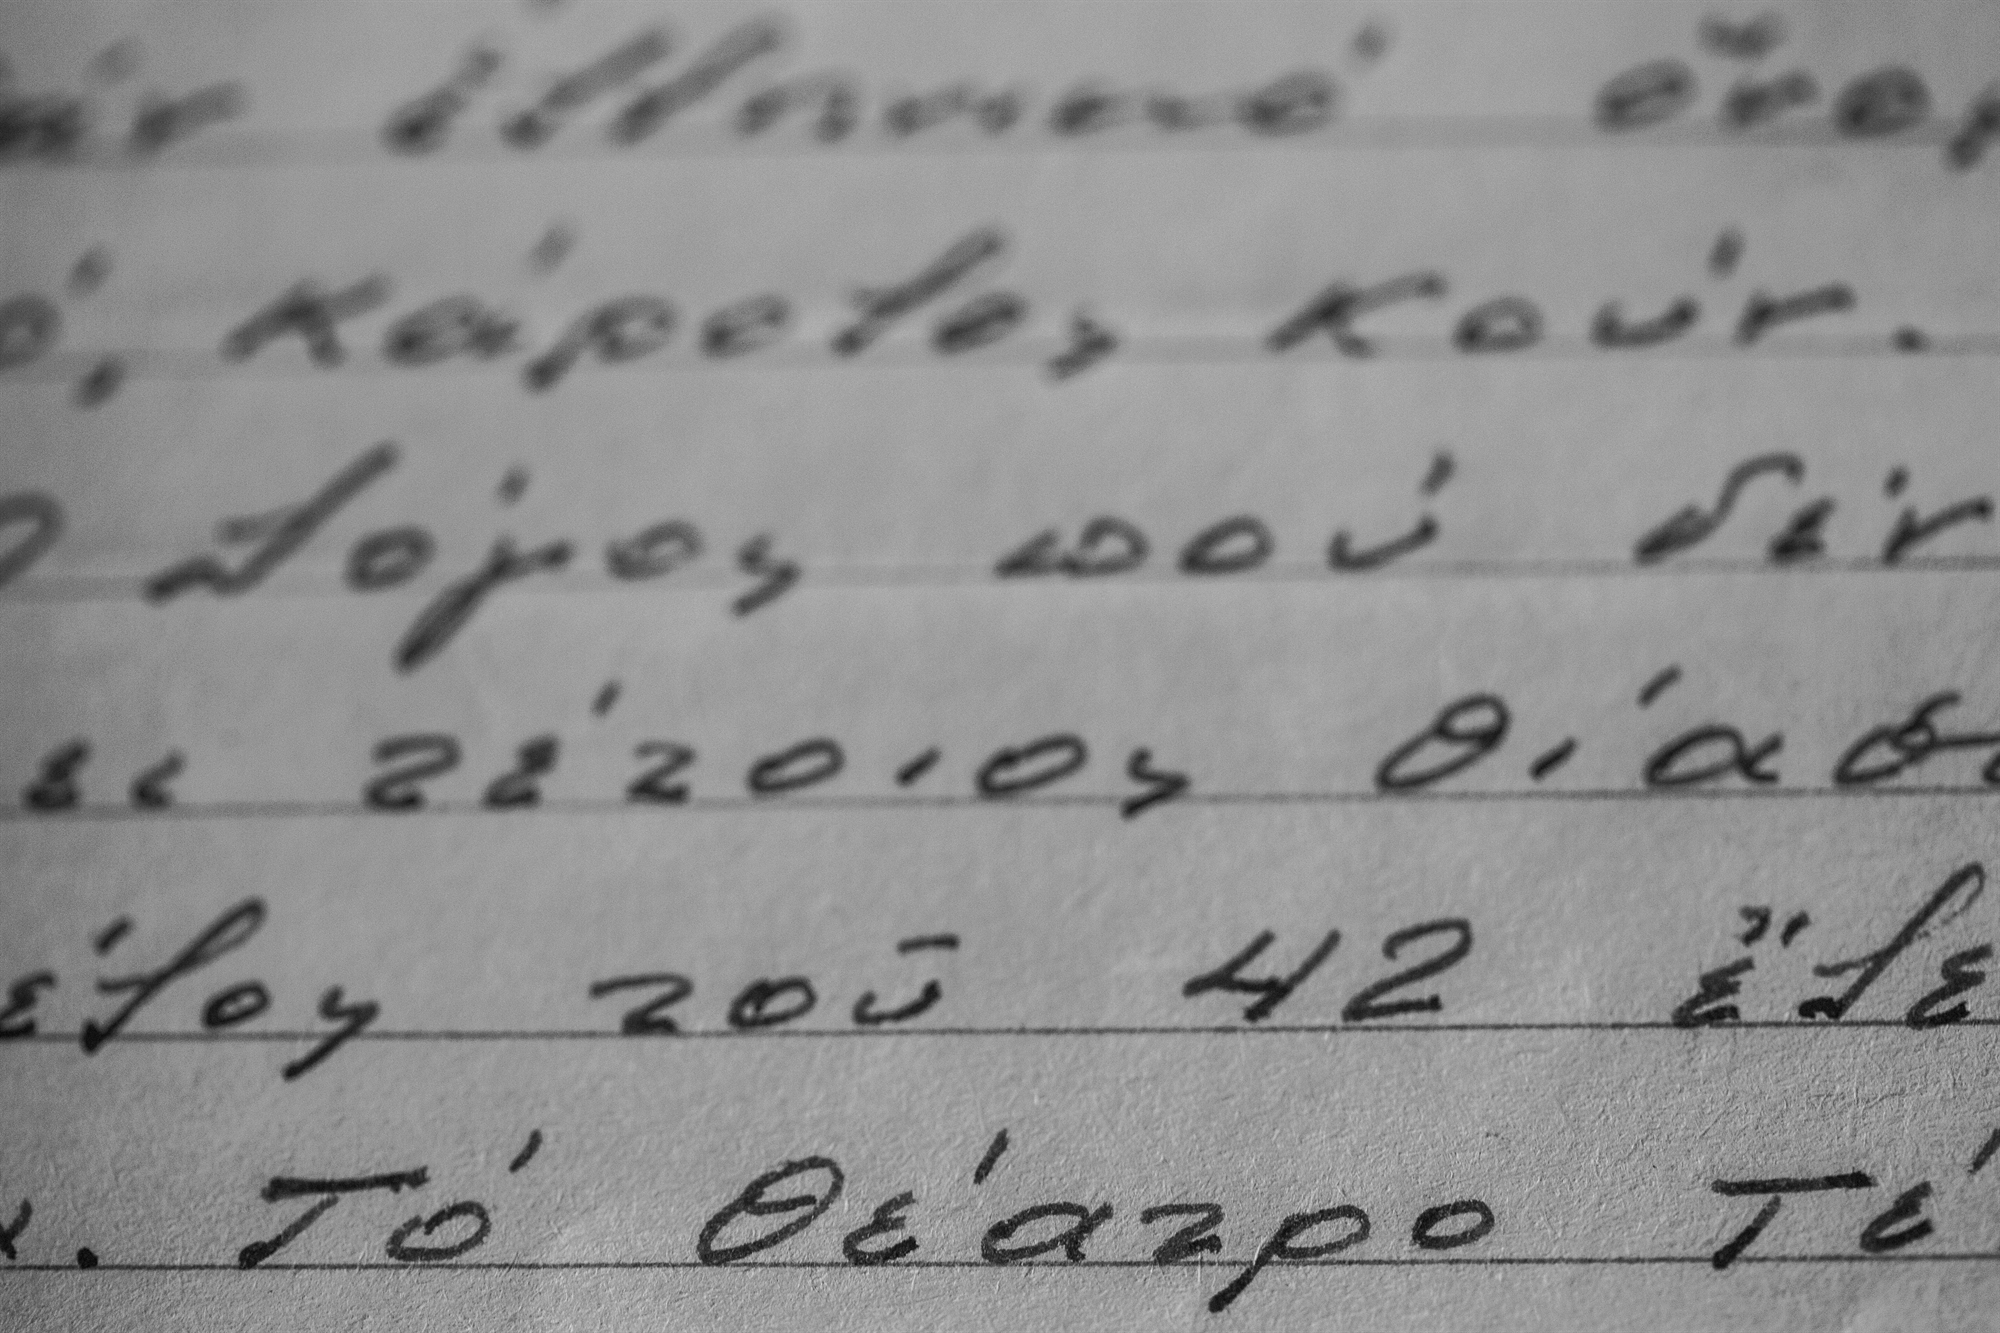 ἑλληνικό
Κάρολος Κούν.
λόγος πού δέν
τέτοιος θίασ
έλος τοῦ 42 ἔλε
. Τό θέατρο Τέ